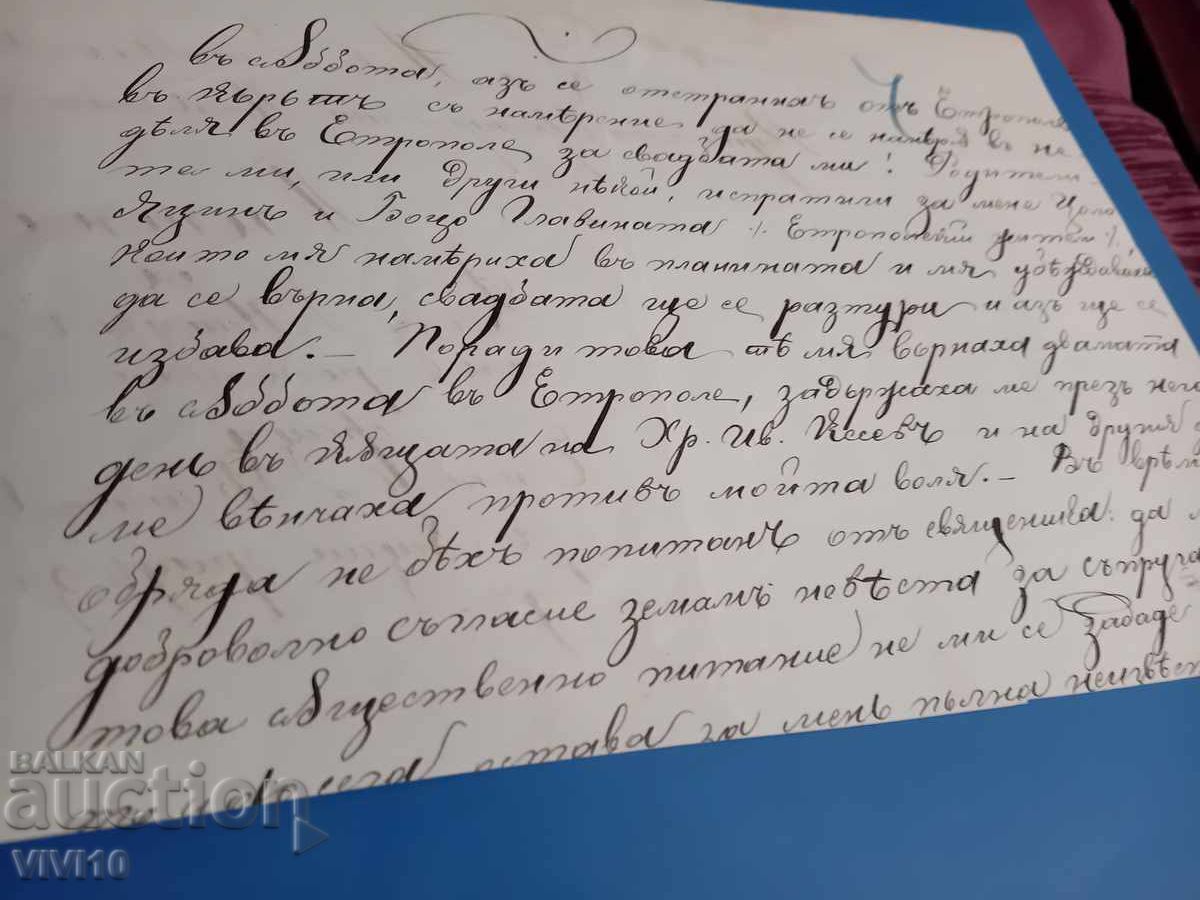 въ сѫббота, азъ се отстранихъ отъ Етрополе
въ Кърътъ съ намѣрение да не се намѣря въ не-
дѣля въ Етрополе за свадбата ми! Родители-
те ми, или други нѣкой, испратили за мене Цоло
и Боцо Главината ⁒ Етрополски жители ⁒,
които мя намѣриха въ планината и мя убѣждаваха
да се върна, свадбата ще се разтури и азъ ще се
избава. — Поради това тѣ мя върнаха двамата
въ сѫббота въ Етрополе, задържаха ме презъ
день въ кѫщата на Хр. Ив. и на другия
ме вѣнчаха противъ мойта воля. — Въ врѣме
обряда не бѣхъ попитанъ отъ священика: да ли
доброволно съгласие земамъ невѣста за съпруга
това сѫществено питание не ми се зададе
остава за мень пълна неизвѣст
BALKAN
auction
VIVI10